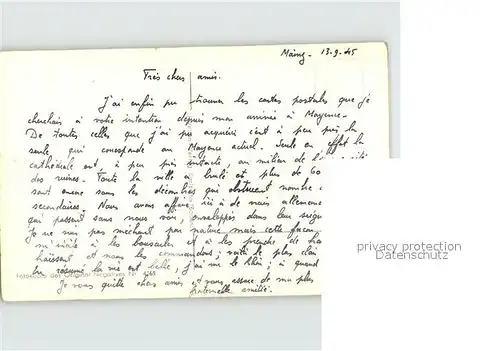 Mainz - 13-9-45
Très chers amis.
J'ai enfin pu trouver les cartes postales que je
cherchais à votre intention depuis mon arrivée à Mayence.
De toutes celles que j'ai pu acquérir c'est à peu près la
seule, qui corresponde au Mayence actuel. Seule en effet la
cathédrale est, à peu près intacte, au milieu de
des ruines. Toute la ville a brulé et plus de 60
sont encore sous les décombres qui obstruent nombre
secondaires. Nous avons affaire ici à de vrais allemands
qui passent sans nous voir, enveloppés dans leur
Je ne suis pas méchant par nature mais cette
m'invite à les bousculer et à les prendre de
haïssent et nous les commandons; voilà le plus clair
En résumé la vie est belle, j'ai me le Rhin; à quand
Je vous quitte chers amis et vous assure de ma plus
fraternelle amitié.
privacy protection
Datenschutz